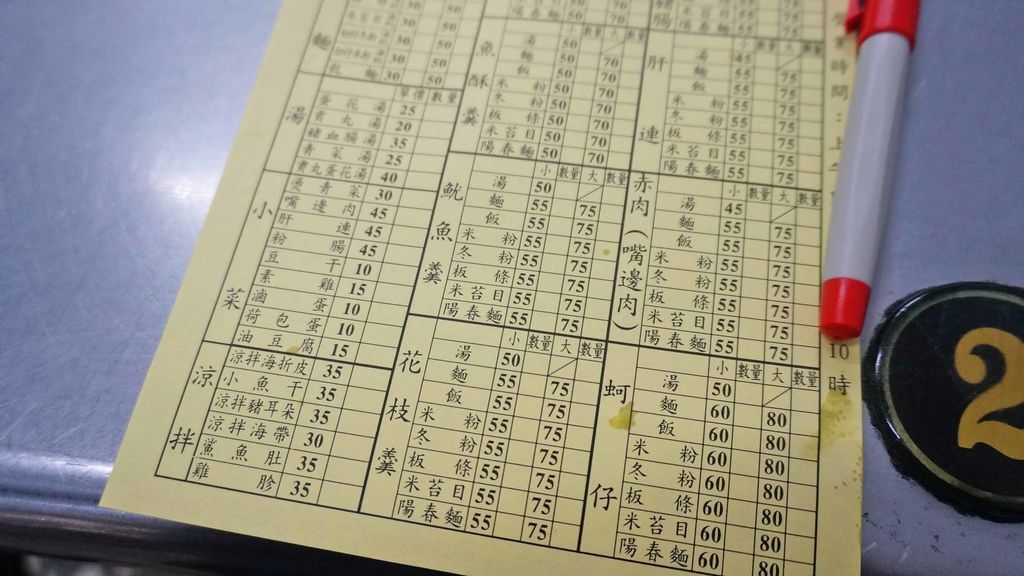 麵
麵 30 50
湯
單價 數量
蛋花湯 25
貢丸湯 20
豬血腸湯 35
青菜湯 25
貢丸蛋花湯 40
小菜
燙青菜 30
嘴邊肉 45
肝連 45
粉腸 45
豆干 10
素雞 15
滷蛋 10
荷包蛋 10
油豆腐 15
涼拌
涼拌海折皮 35
小魚干 35
涼拌豬耳朵 35
涼拌海帶 30
鯊魚肚 35
雞胗 35
魚酥羹
小 數量 大 數量
湯 50
麵 50 70
飯 50 70
米粉 50 70
冬粉 50 70
板條 50 70
米苔目 50 70
陽春麵 50 70
魷魚羹
小 數量 大 數量
湯 50
麵 55 75
飯 55 75
米粉 55 75
冬粉 55 75
板條 55 75
米苔目 55 75
陽春麵 55 75
花枝羹
小 數量 大 數量
湯 50
麵 55 75
飯 55 75
米粉 55 75
冬粉 55 75
板條 55 75
米苔目 55 75
陽春麵 55 75
腸
肝連
小 數量 大 數量
湯 45
麵 55 75
飯 55 75
米粉 55 75
冬粉 55 75
板條 55 75
米苔目 55 75
陽春麵 55 75
赤肉(嘴邊肉)
小 數量 大 數量
湯 45
麵 55 75
飯 55 75
米粉 55 75
冬粉 55 75
板條 55 75
米苔目 55 75
陽春麵 55 75
蚵仔
小 數量 大 數量
湯 50
麵 60 80
飯 60 80
米粉 60 80
冬粉 60 80
板條 60 80
米苔目 60 80
陽春麵 60 80
時間:上午
10時
2